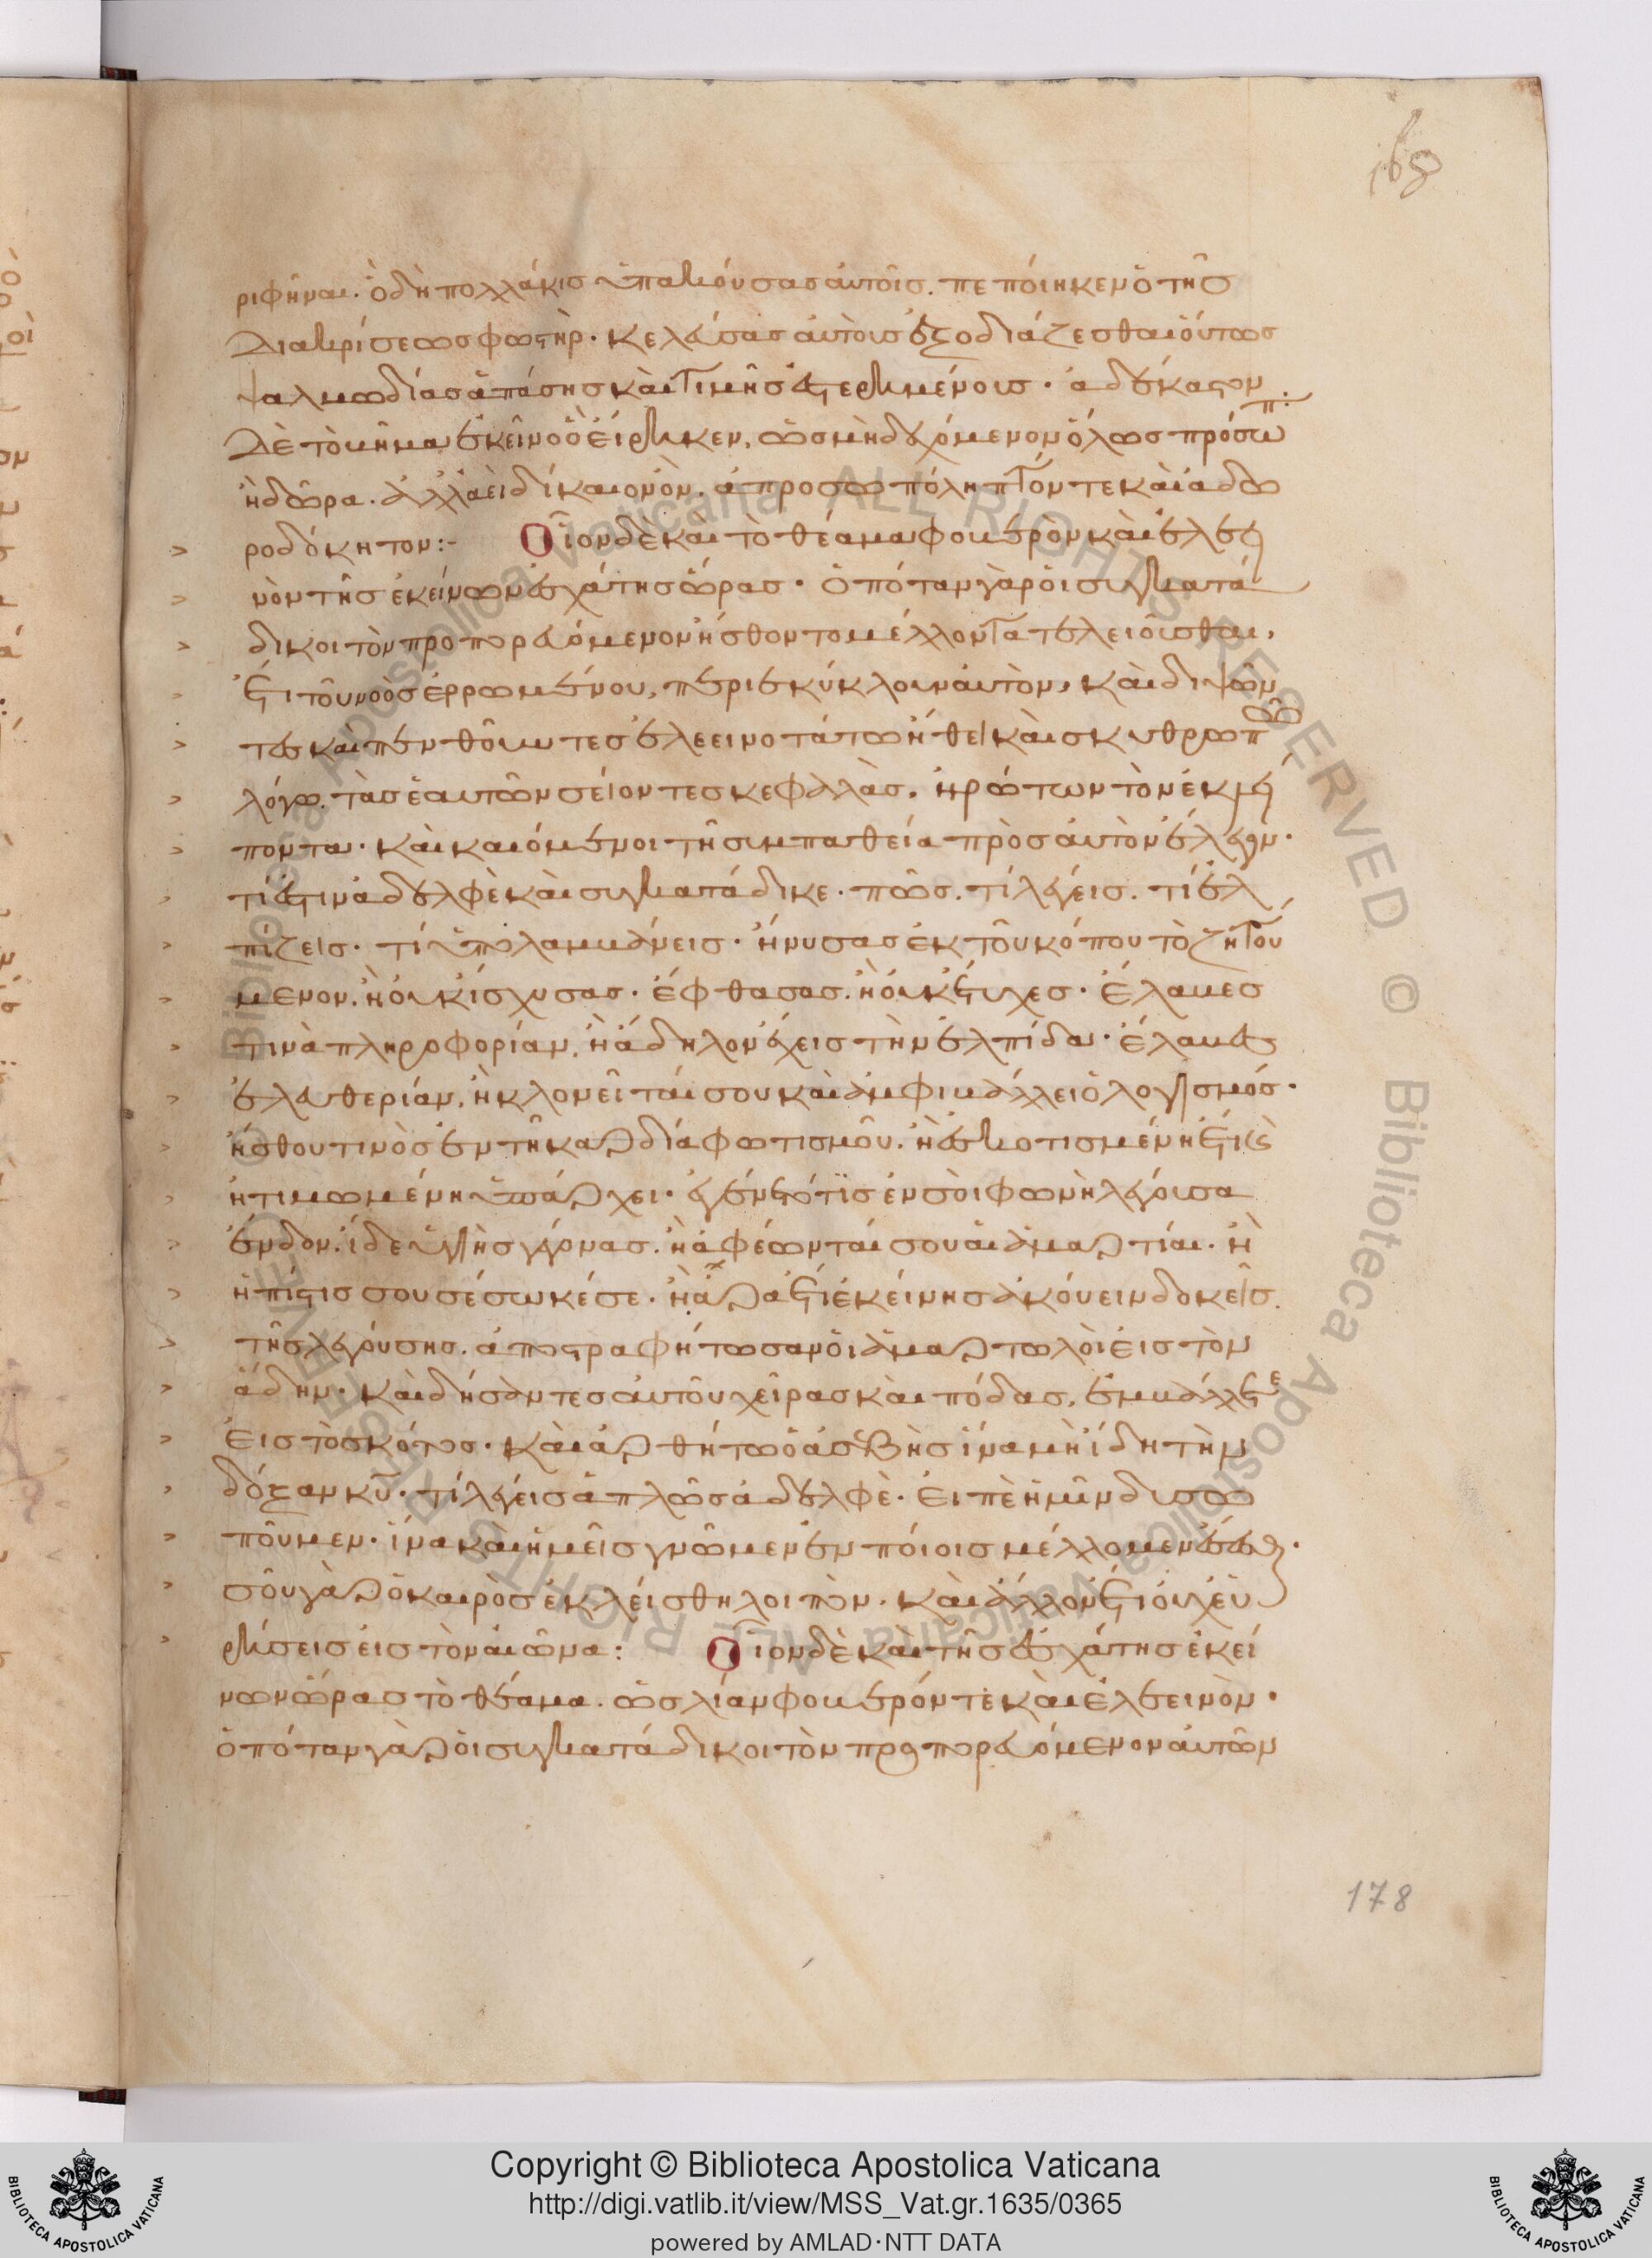 168
ριφῆναι. ὃ δὴ πολλάκις ὑπακούσας αὐτοῖς. πεποίηκεν ὁ τῆς
Διακρίσεως φωστήρ. κελεύσας αὐτοὺς ἐξοδιάζεσθαι οὕτως
ψαλμωδίας ἁπάσης καὶ τιμῆς ἐστερημένους. ἀδέκαστον
Δὲ τὸ κρῖμα ἐκεῖνο ὃ εἴρηκεν, ὡς μὴ δεχόμενον ὅλως πρόσωπ:
ἢ δῶρα. ἀλλ' ἀεὶ δίκαιον ὂν. ἀπροσωπόληπτόν τε καὶ ἀδω
ροδόκητον:- Οἷον δὲ καὶ τὸ θέαμα φοβερὸν καὶ ἐλεει
νὸν τῆς ἐκείνων ἐσχάτης ὥρας. ὁπόταν γὰρ οἱ συγκατά
δικοι τὸν προπορευόμενον ᾔσθοντο μέλλοντα τελειοῦσθαι,
ἔτι τοῦ νοὸς ἐρρωμένου, περιεκύκλουν αὐτὸν, καὶ διψῶν
τες καὶ πενθοῦντες ἐλεεινοτάτω ἤθει καὶ σκυθρωπῶ
λόγω. τὰς ἑαυτῶν σείοντες κεφαλὰς. ἠρώτων τὸν ἐκλεί
ποντα. καὶ καιόμενοι τῆ συμπαθεία πρὸς αὐτὸν ἔλεγον.
τί ἐστιν ἀδελφὲ καὶ συγκατάδικε. πῶς. τί λέγεις. τί ἐλ
πίζεις. τί ὑπολαμβάνεις. ἤνυσας ἐκ τοῦ κόπου τὸ ζητού
μενον. ἢ οὐκ ἴσχυσας. ἔφθασας. ἢ οὐκ ἔτυχες. ἔλαβες
τινὰ πληροφορίαν. ἢ ἄδηλον ἔχεις τὴν ἐλπίδα. ἔλαβες
ἐλευθερίαν. ἢ κλονεῖταί σου καὶ ἀμφιβάλλει ὁ λογισμός.
ᾔσθου τινὸς ἐν τῆ καρδία φωτισμοῦ. ἢ ἐσκοτισμένη ἔτι καὶ
ἠτιμωμένη ὑπάρχει. ἐγένετό τις ἐν σοὶ φωνὴ λέγουσα
ἔνδον. ἴδε ὑγιὴς γέγονας. ἢ ἀφέωνταί σου αἱ ἁμαρτίαι. ἢ
ἡ πίστις σου σέσωκέ σε. ἢ ἆρα ἔτι ἐκείνης ἀκούειν δοκεῖς.
τῆς λεγούσης. ἀποστραφήτωσαν οἱ ἁμαρτωλοὶ εἰς τὸν
ἅδην. καὶ δήσαντες αὐτοῦ χεῖρας καὶ πόδας, ἐμβάλλετε
εἰς τὸ σκότος. καὶ ἀρθήτω ὁ ἀσεβὴς ἵνα μὴ ἴδη τὴν
δόξαν κυ. τί λέγεις ἁπλῶς ἀδελφὲ. εἰπὲ ἡμῖν δυσω
ποῦμεν. ἵνα καὶ ἡμεῖς γνῶμεν ἐν ποίοις μέλλομεν ἔσεσθαι.
σοῦ γὰρ ὁ καιρὸς ἐκλείσθη λοιπὸν. καὶ ἄλλον ἔτι οὐχ εὑ
ρήσεις εἰς τὸν αἰῶνα: Οἷον δὲ καὶ τῆς ἐσχάτης ἐκεί
νων ὥρας τὸ θέαμα. ὡς λίαν φοβερόν τε καὶ ἐλεεινὸν.
ὁπόταν γὰρ οἱ συγκατάδικοι τὸν προπορευόμενον αὐτῶν
178
Biblioteca Apostolica Vaticana ALL RIGHTS RESERVED ©
Copyright © Biblioteca Apostolica Vaticana
http://digi.vatlib.it/view/MSS_Vat.gr.1635/0365
powered by AMLAD·NTT DATA
BIBLIOTECA APOSTOLICA VATICANA
BIBLIOTECA APOSTOLICA VATICANA